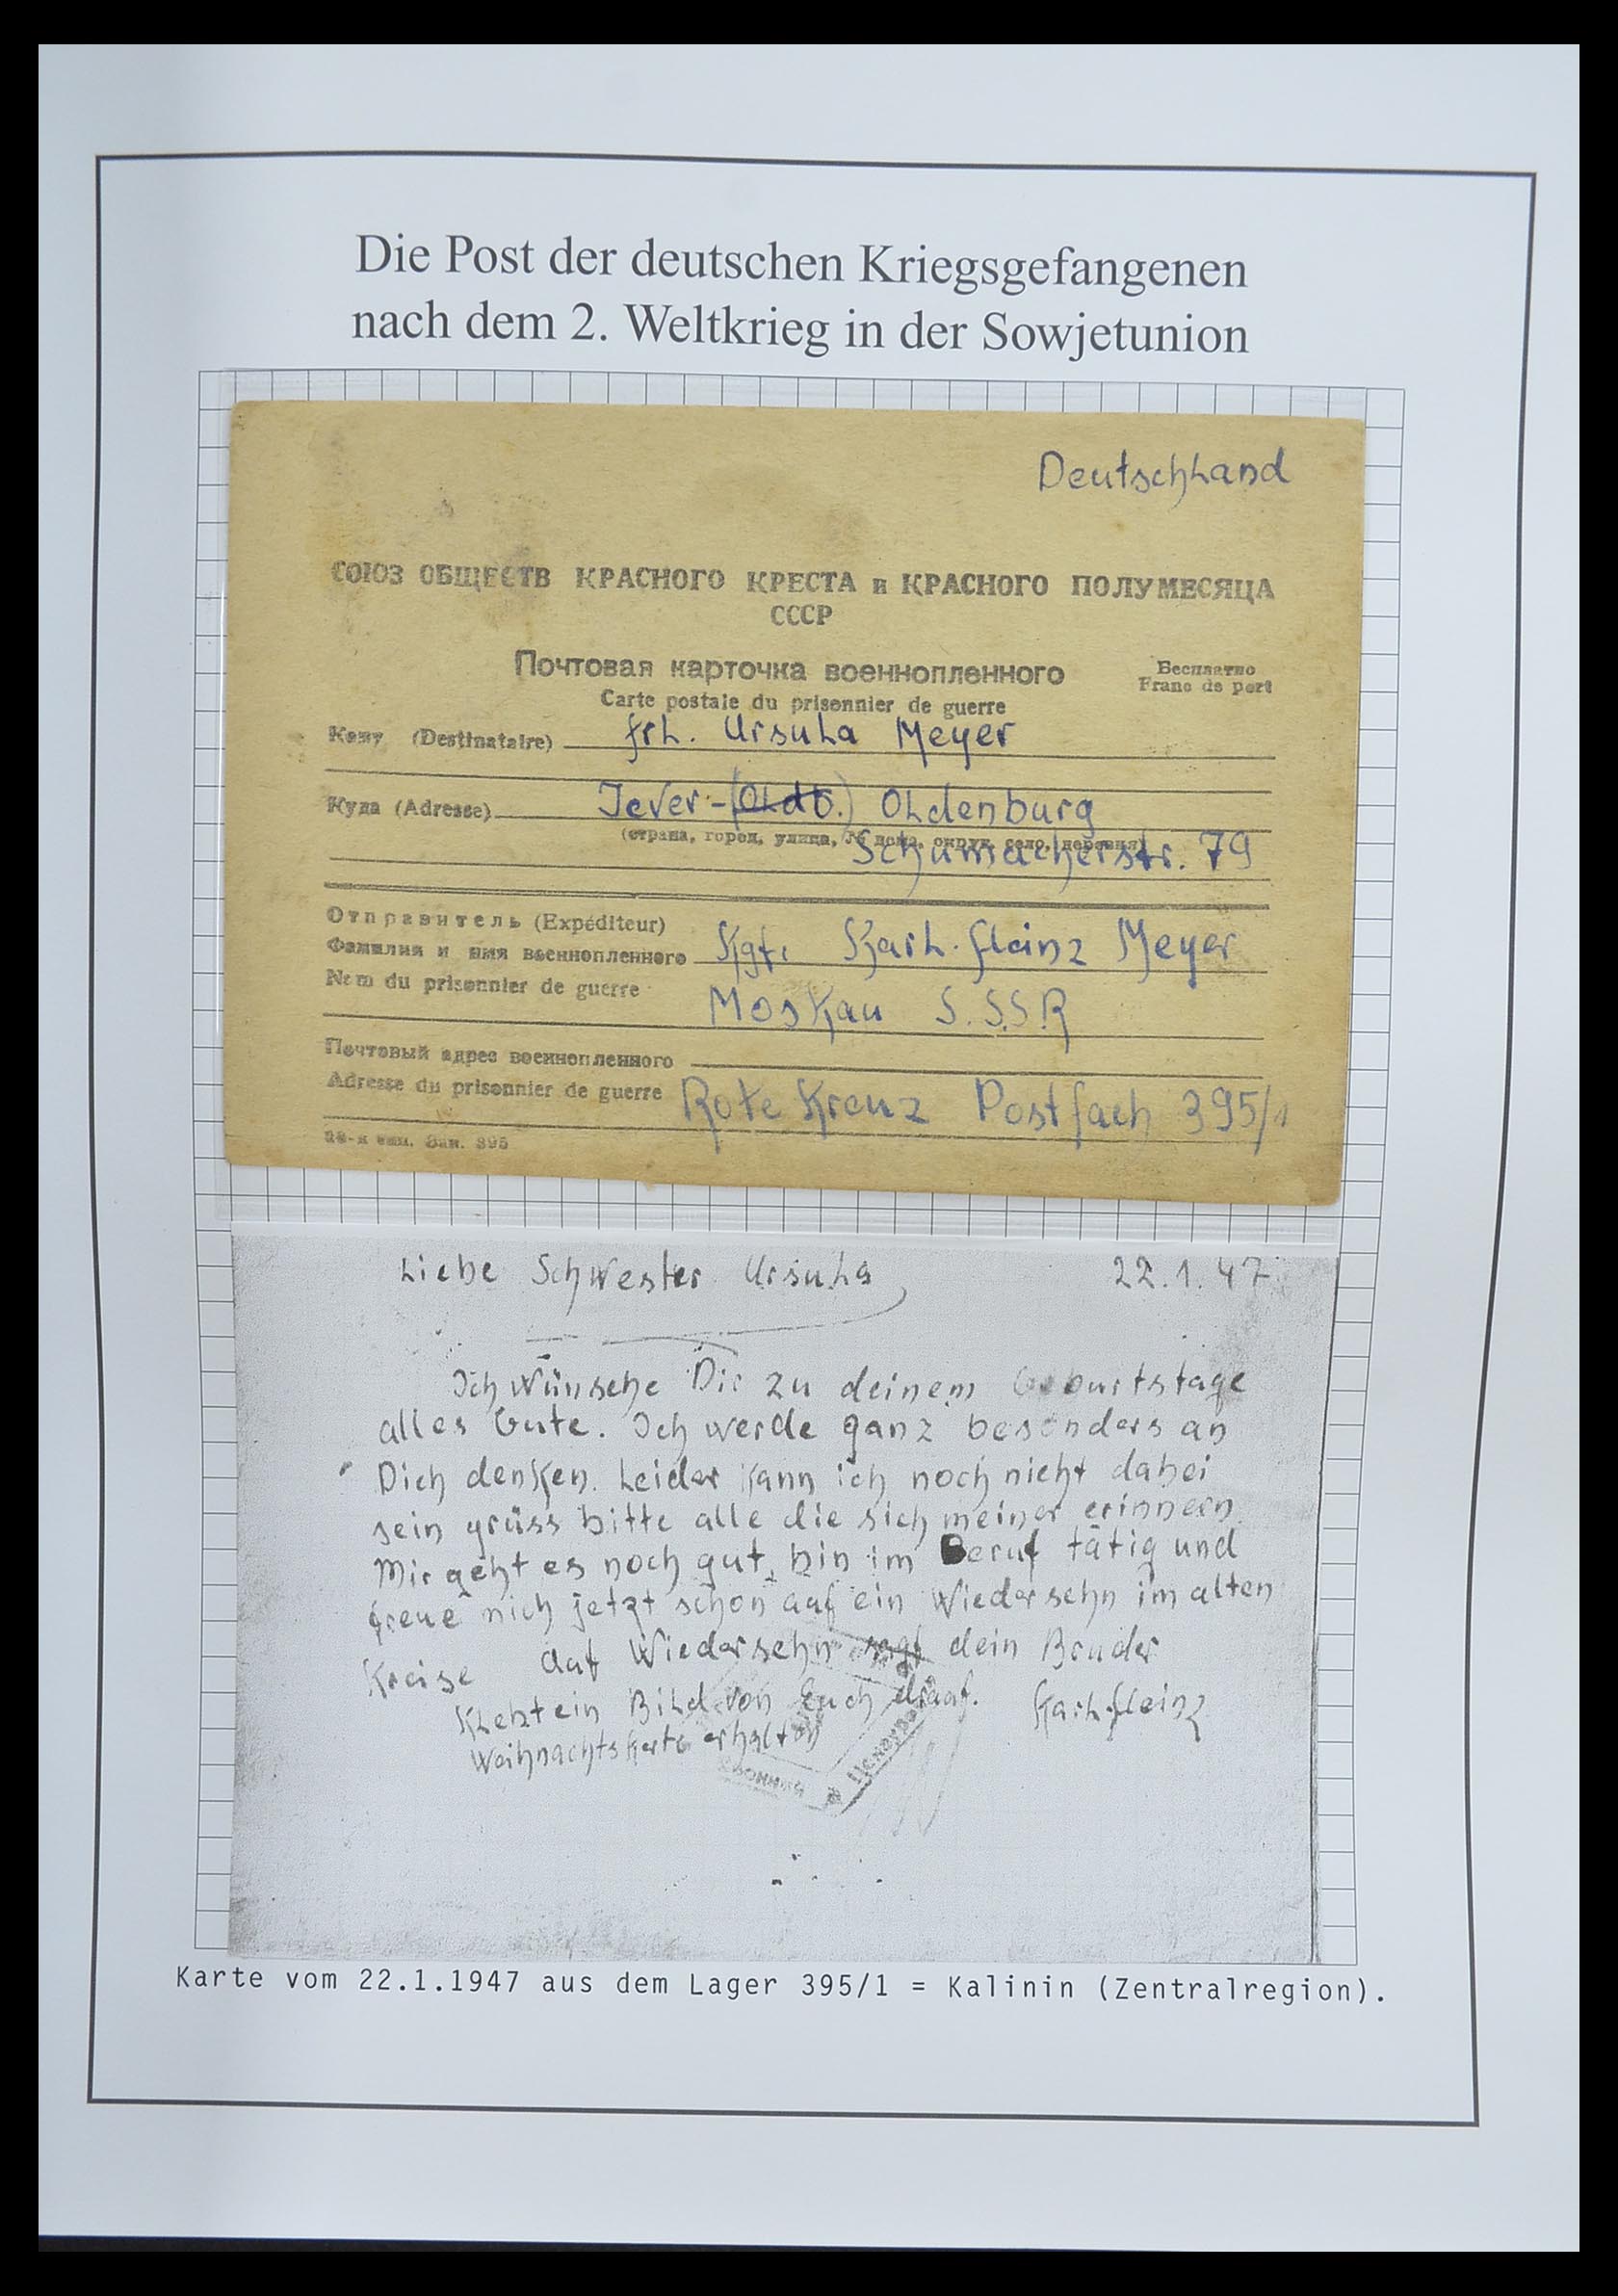 Die Post der deutschen Kriegsgefangenen
nach dem 2. Weltkrieg in der Sowjetunion
Deutschland
СОЮЗ ОБЩЕСТВ КРАСНОГО КРЕСТА и КРАСНОГО ПОЛУМЕСЯЦА
СССР
Почтовая карточка военнопленного
Бесплатно
Carte postale du prisonnier de guerre
Franc de port
Кому (Destinataire) Frl. Ursula Meyer
Куда (Adresse) Jever-(Oldb.) Oldenburg
(страна, город, улица, № дома, округ, село, деревня)
Schumacherstr. 79
Отправитель (Expéditeur)
Фамилия и имя военнопленного Kgf. Karl-Heinz Meyer
Nom du prisonnier de guerre
Moskau S.S.S.R
Почтовый адрес военнопленного
Adresse du prisonnier de guerre Rote Kreuz Postfach 395/1
Зак. 395
Liebe Schwester Ursula 22.1.47
Ich wünsche Dir zu deinem Geburtstage
alles Gute. Ich werde ganz besonders an
Dich denken. Leider kann ich noch nicht dabei
sein grüss bitte alle die sich meiner erinnern.
Mir geht es noch gut, bin im Beruf tätig und
freue mich jetzt schon auf ein Wiedersehn im alten
Kreise auf Wiedersehn sagt dein Bruder
Klebt ein Bild von Euch drauf. Karl-Heinz
Weihnachtskarte erhalten
Karte vom 22.1.1947 aus dem Lager 395/1 = Kalinin (Zentralregion).